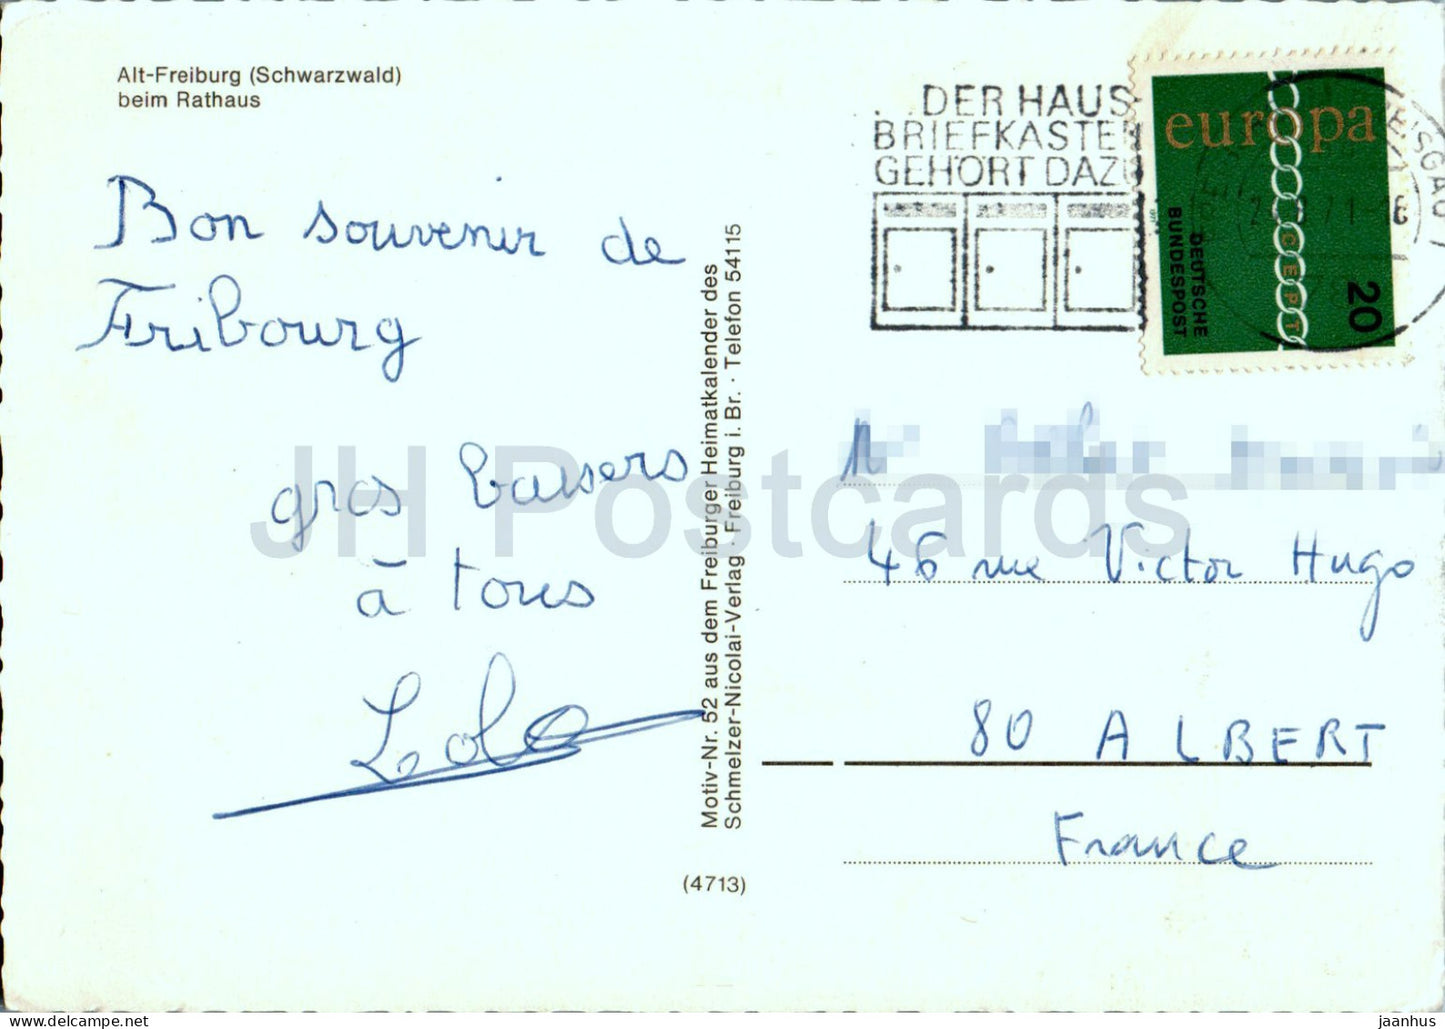 Alt-Freiburg (Schwarzwald)
beim Rathaus
Bon souvenir de
Fribourg
gros baisers
à tous
Lolo
Motiv-Nr. 52 aus dem Freiburger Heimatkalender des
Schmelzer-Nicolai-Verlag · Freiburg i. Br. · Telefon 54115
(4713)
DER HAUS
BRIEFKASTEN
GEHÖRT DAZU
europa
CEPT
DEUTSCHE
BUNDESPOST
20
46 rue Victor Hugo
80 ALBERT
France
JH Postcards
www.jaanhus.com
jaanhus